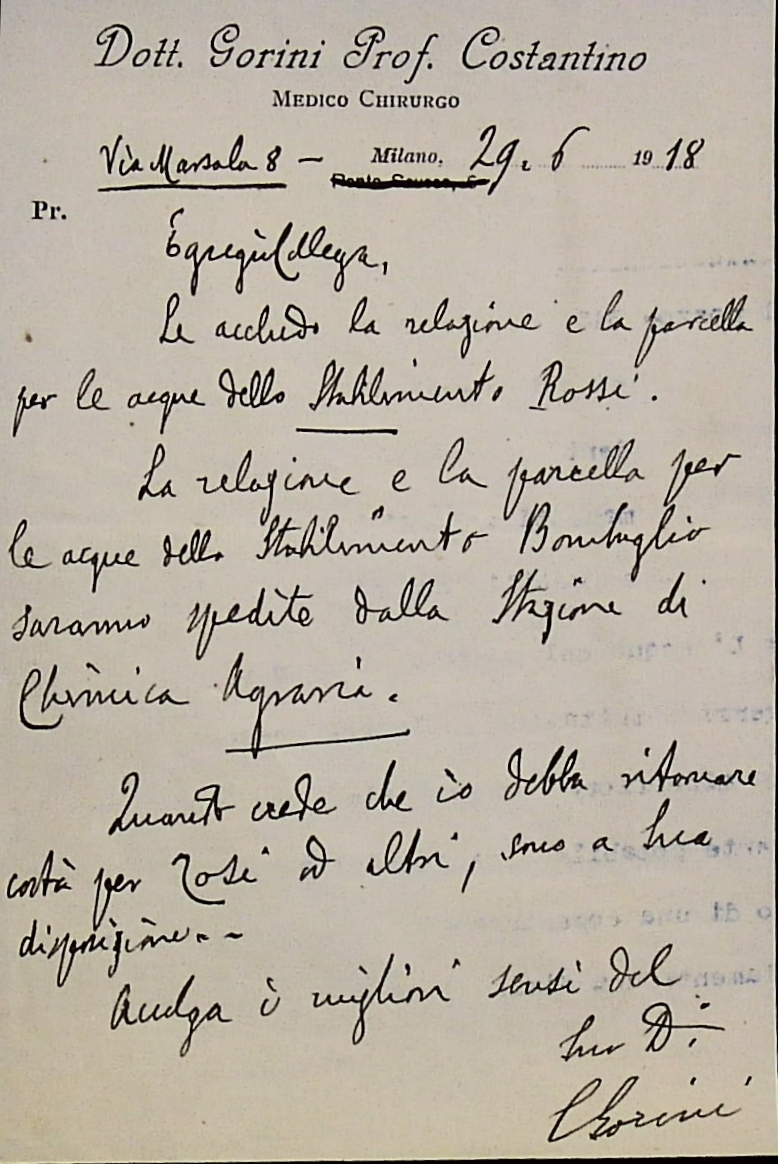 Dott. Gorini Prof. Costantino
MEDICO CHIRURGO
Via Marsala 8 — Milano, 29. 6 1918
Pr.
Egregio Collega,
Le accludo la relazione e la parcella
per le acque dello Stabilimento Rossi.
La relazione e la parcella per
le acque dello Stabilimento
saranno spedite dalla Stazione di
Chimica Agraria.
Quando crede che io debba ritornare
costà per Rossi ed altri, sono a Sua
disposizione. -
Accolga i migliori sensi del
Suo D.
CGorini